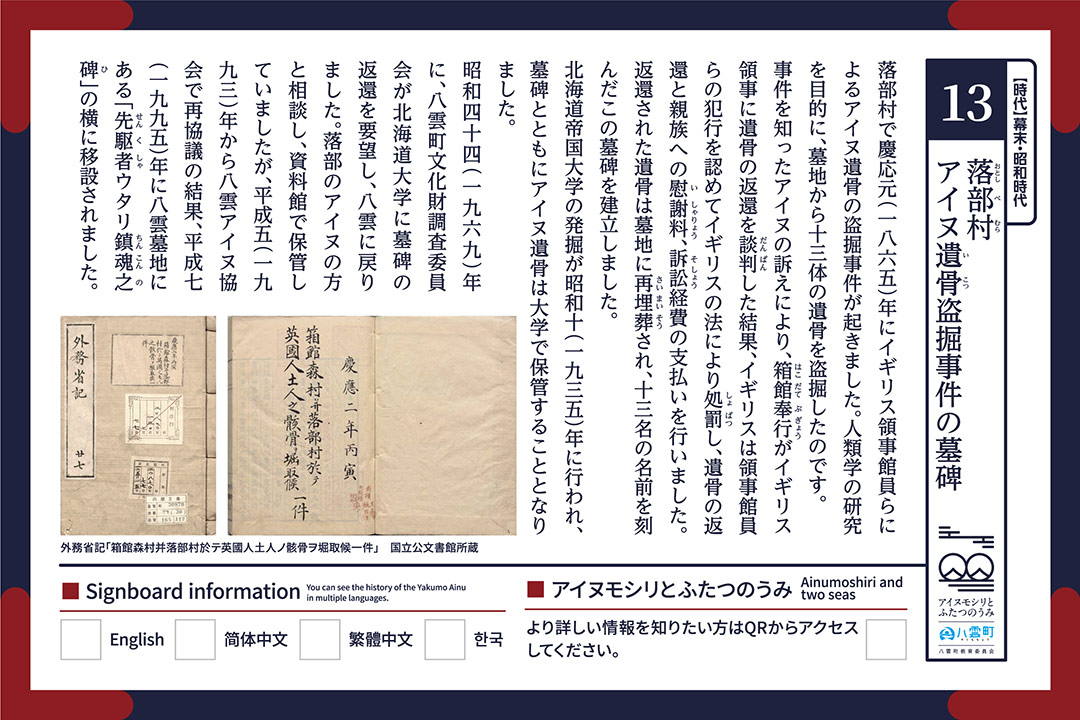 【時代】幕末・昭和時代
13
落部村
おとしべむら
アイヌ遺骨盗掘事件の墓碑
いこつ
落部村で慶応元(一八六五)年にイギリス領事館員らに
よるアイヌ遺骨の盗掘事件が起きました。人類学の研究
を目的に、墓地から十三体の遺骨を盗掘したのです。
事件を知ったアイヌの訴えにより、箱館奉行がイギリス
はこだてぶぎょう
領事に遺骨の返還を談判した結果、イギリスは領事館員
だんぱん
らの犯行を認めてイギリスの法により処罰し、遺骨の返
しょばつ
還と親族への慰謝料、訴訟経費の支払いを行いました。
いしゃりょう そしょう
返還された遺骨は墓地に再埋葬され、十三名の名前を刻
さいまいそう
んだこの墓碑を建立しました。
北海道帝国大学の発掘が昭和十(一九三五)年に行われ、
墓碑とともにアイヌ遺骨は大学で保管することとなり
ました。
昭和四十四(一九六九)年
に、八雲町文化財調査委員
会が北海道大学に墓碑の
返還を要望し、八雲に戻り
ました。落部のアイヌの方
と相談し、資料館で保管し
ていましたが、平成五(一九
九三)年から八雲アイヌ協
会で再協議の結果、平成七
(一九九五)年に八雲墓地に
ある「先駆者ウタリ鎮魂之
せんくしゃ ちんこんの
碑」の横に移設されました。
ひ
外務省記
廿七
慶應二年丙寅
箱館森村并落部村於テ
英國人土人之骸骨ヲ堀取候一件
外務省記「箱館森村并落部村於テ英國人土人ノ骸骨ヲ堀取候一件」 国立公文書館所蔵
Signboard information
You can see the history of the Yakumo Ainu
in multiple languages.
English
简体中文
繁體中文
한국
アイヌモシリとふたつのうみ
Ainumoshiri and
two seas
より詳しい情報を知りたい方はQRからアクセス
してください。
アイヌモシリと
ふたつのうみ
八雲町
八雲町教育委員会